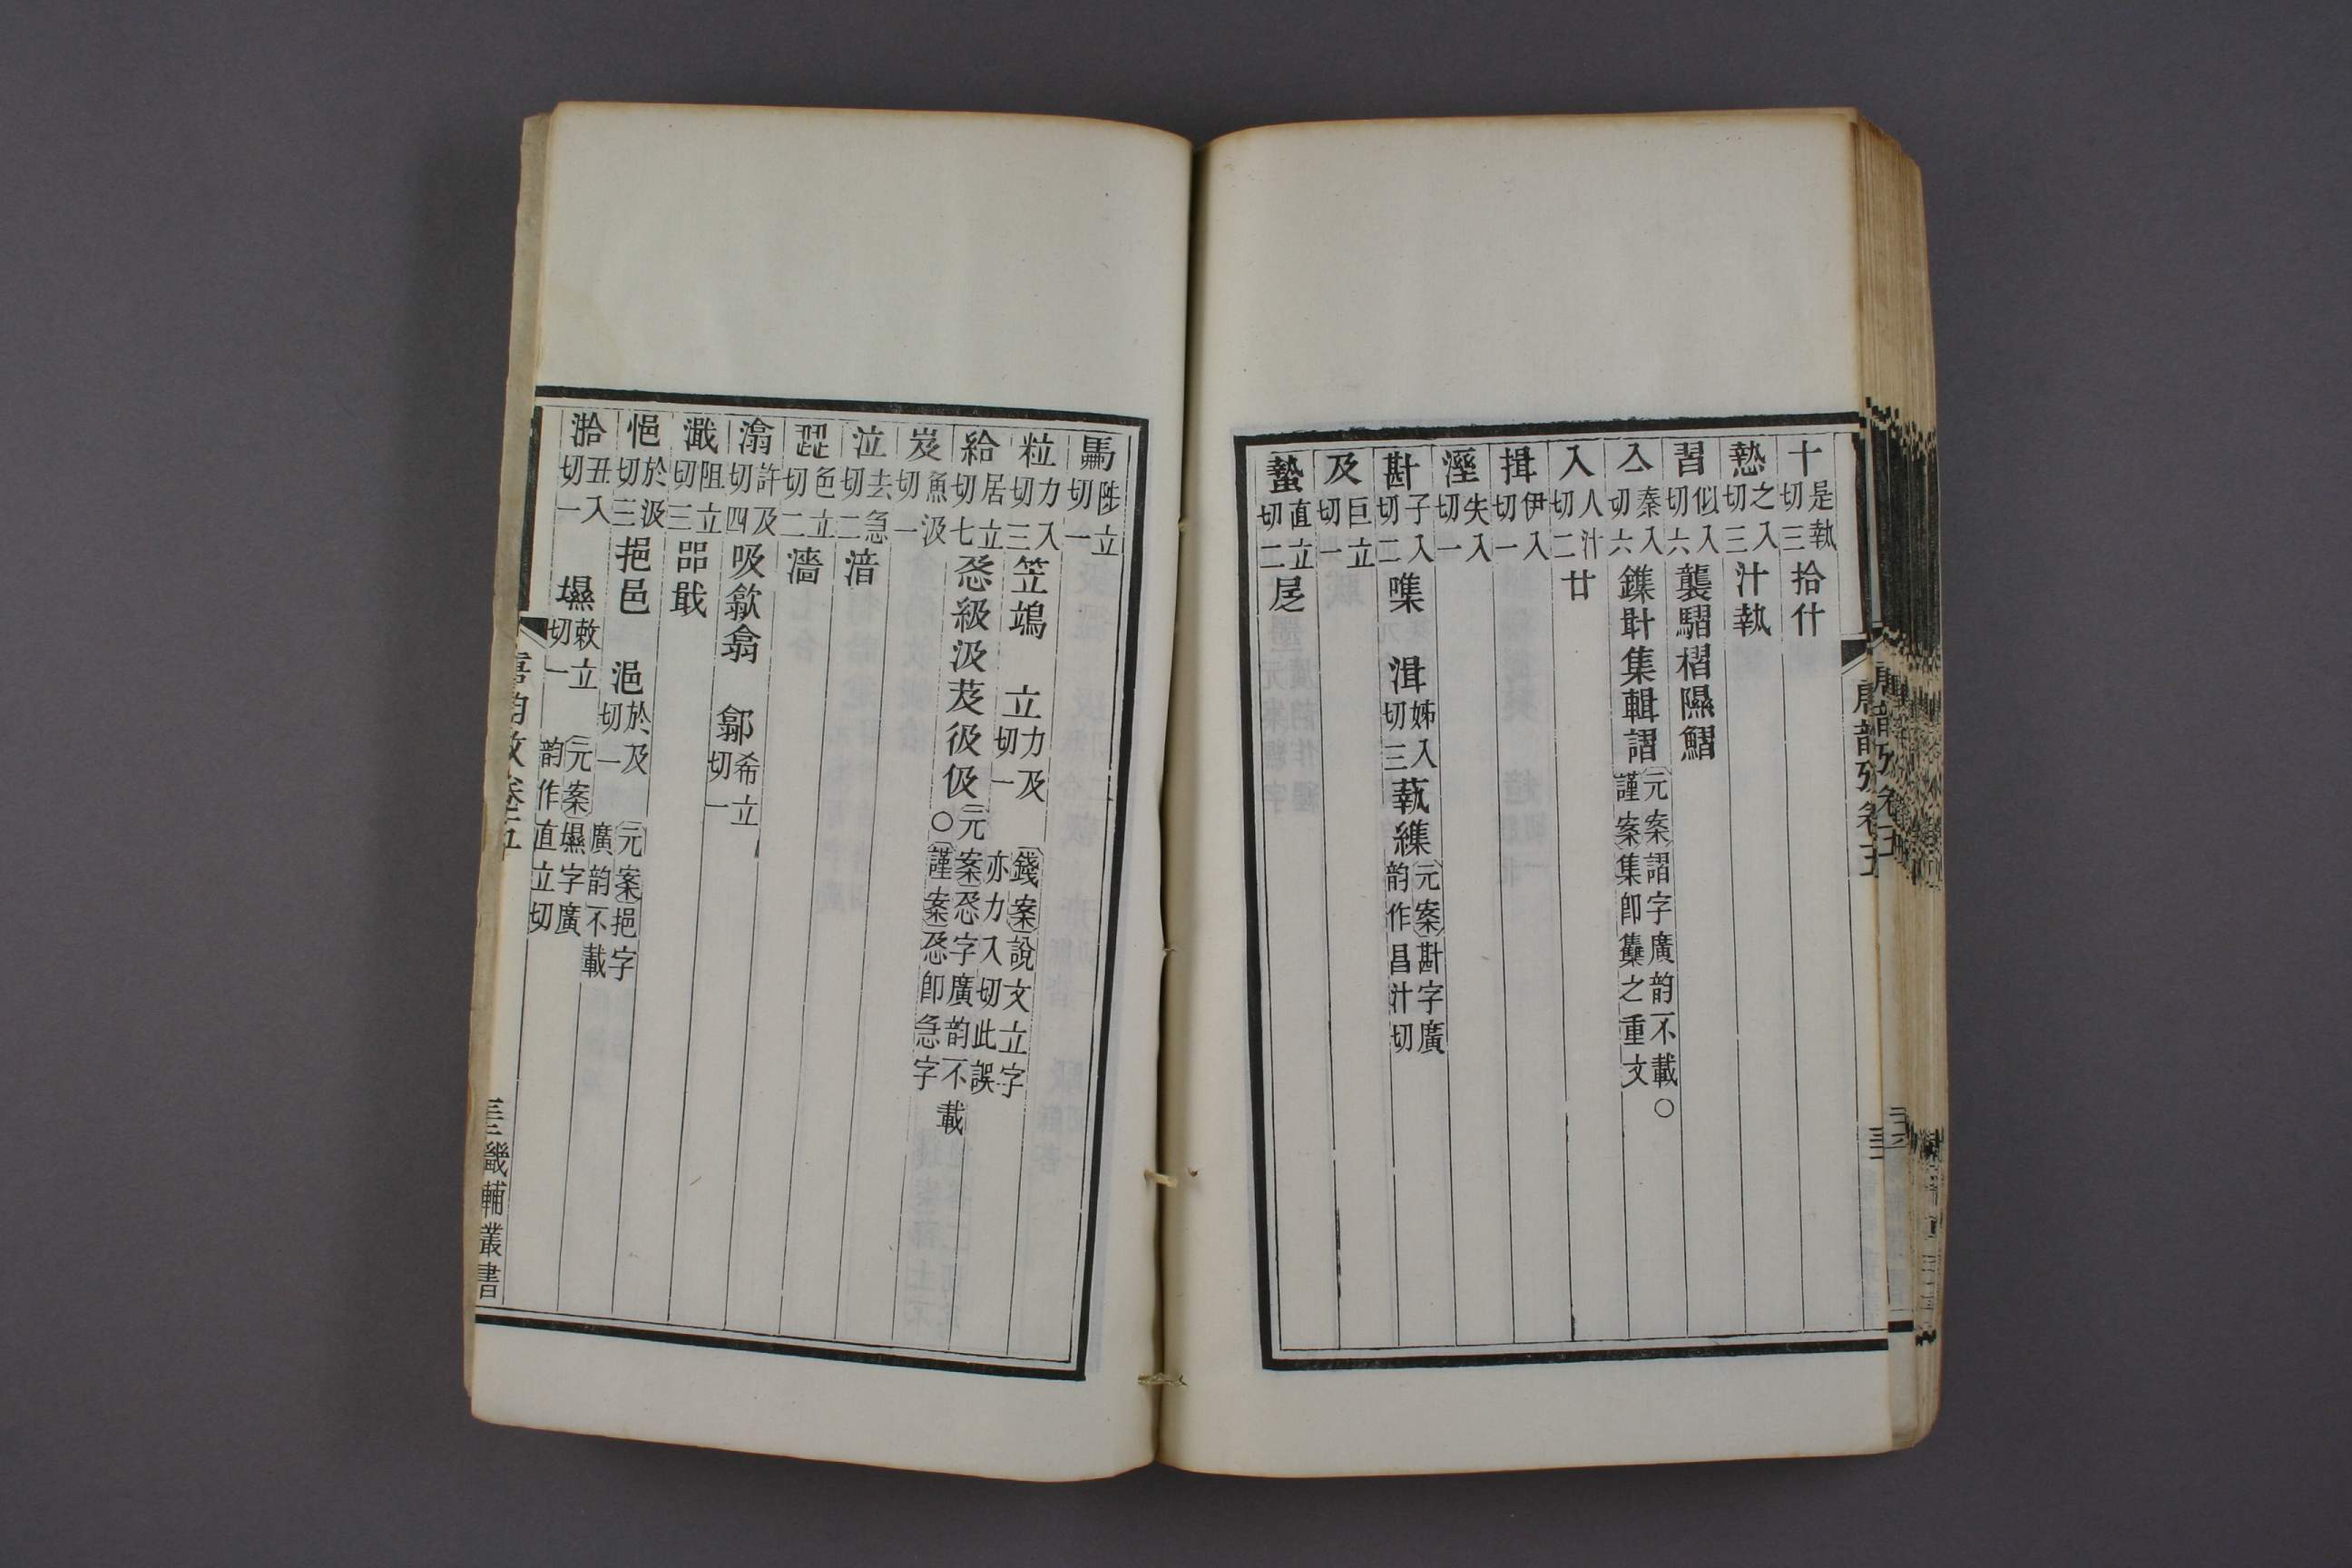 十是執切三拾什
慹之入切三汁執
習似入切六襲騽槢隰鰼
亼秦入切六鏶㗱集輯謵元案謵字廣韵不載○謹案集卽雧之重文
入人汁切二廿
揖伊入切一
溼失入切一
卙子入切二噍 湒姊入切三蓻䌖元案卙字廣韵作昌汁切
及巨立切一
蟄直立切二㞏
唐韵攷卷五
馽陟立切一
粒力入切三笠鴗 立力及切一錢案說文立字亦力入切此誤
給居立切七㤂級汲芨彶伋元案㤂字廣韵不載○謹案㤂卽急字
岌魚汲切一
泣去急切二湆
歰色立切二濇
潝許及切四吸歙翕 䣝希立切一
濈阻立切三㗊戢
悒於汲切三挹邑 浥於及切一元案挹字廣韵不載
湁丑入切一 㙷敕立切一元案㙷字廣韵作直立切
唐韵攷卷五
畿輔叢書